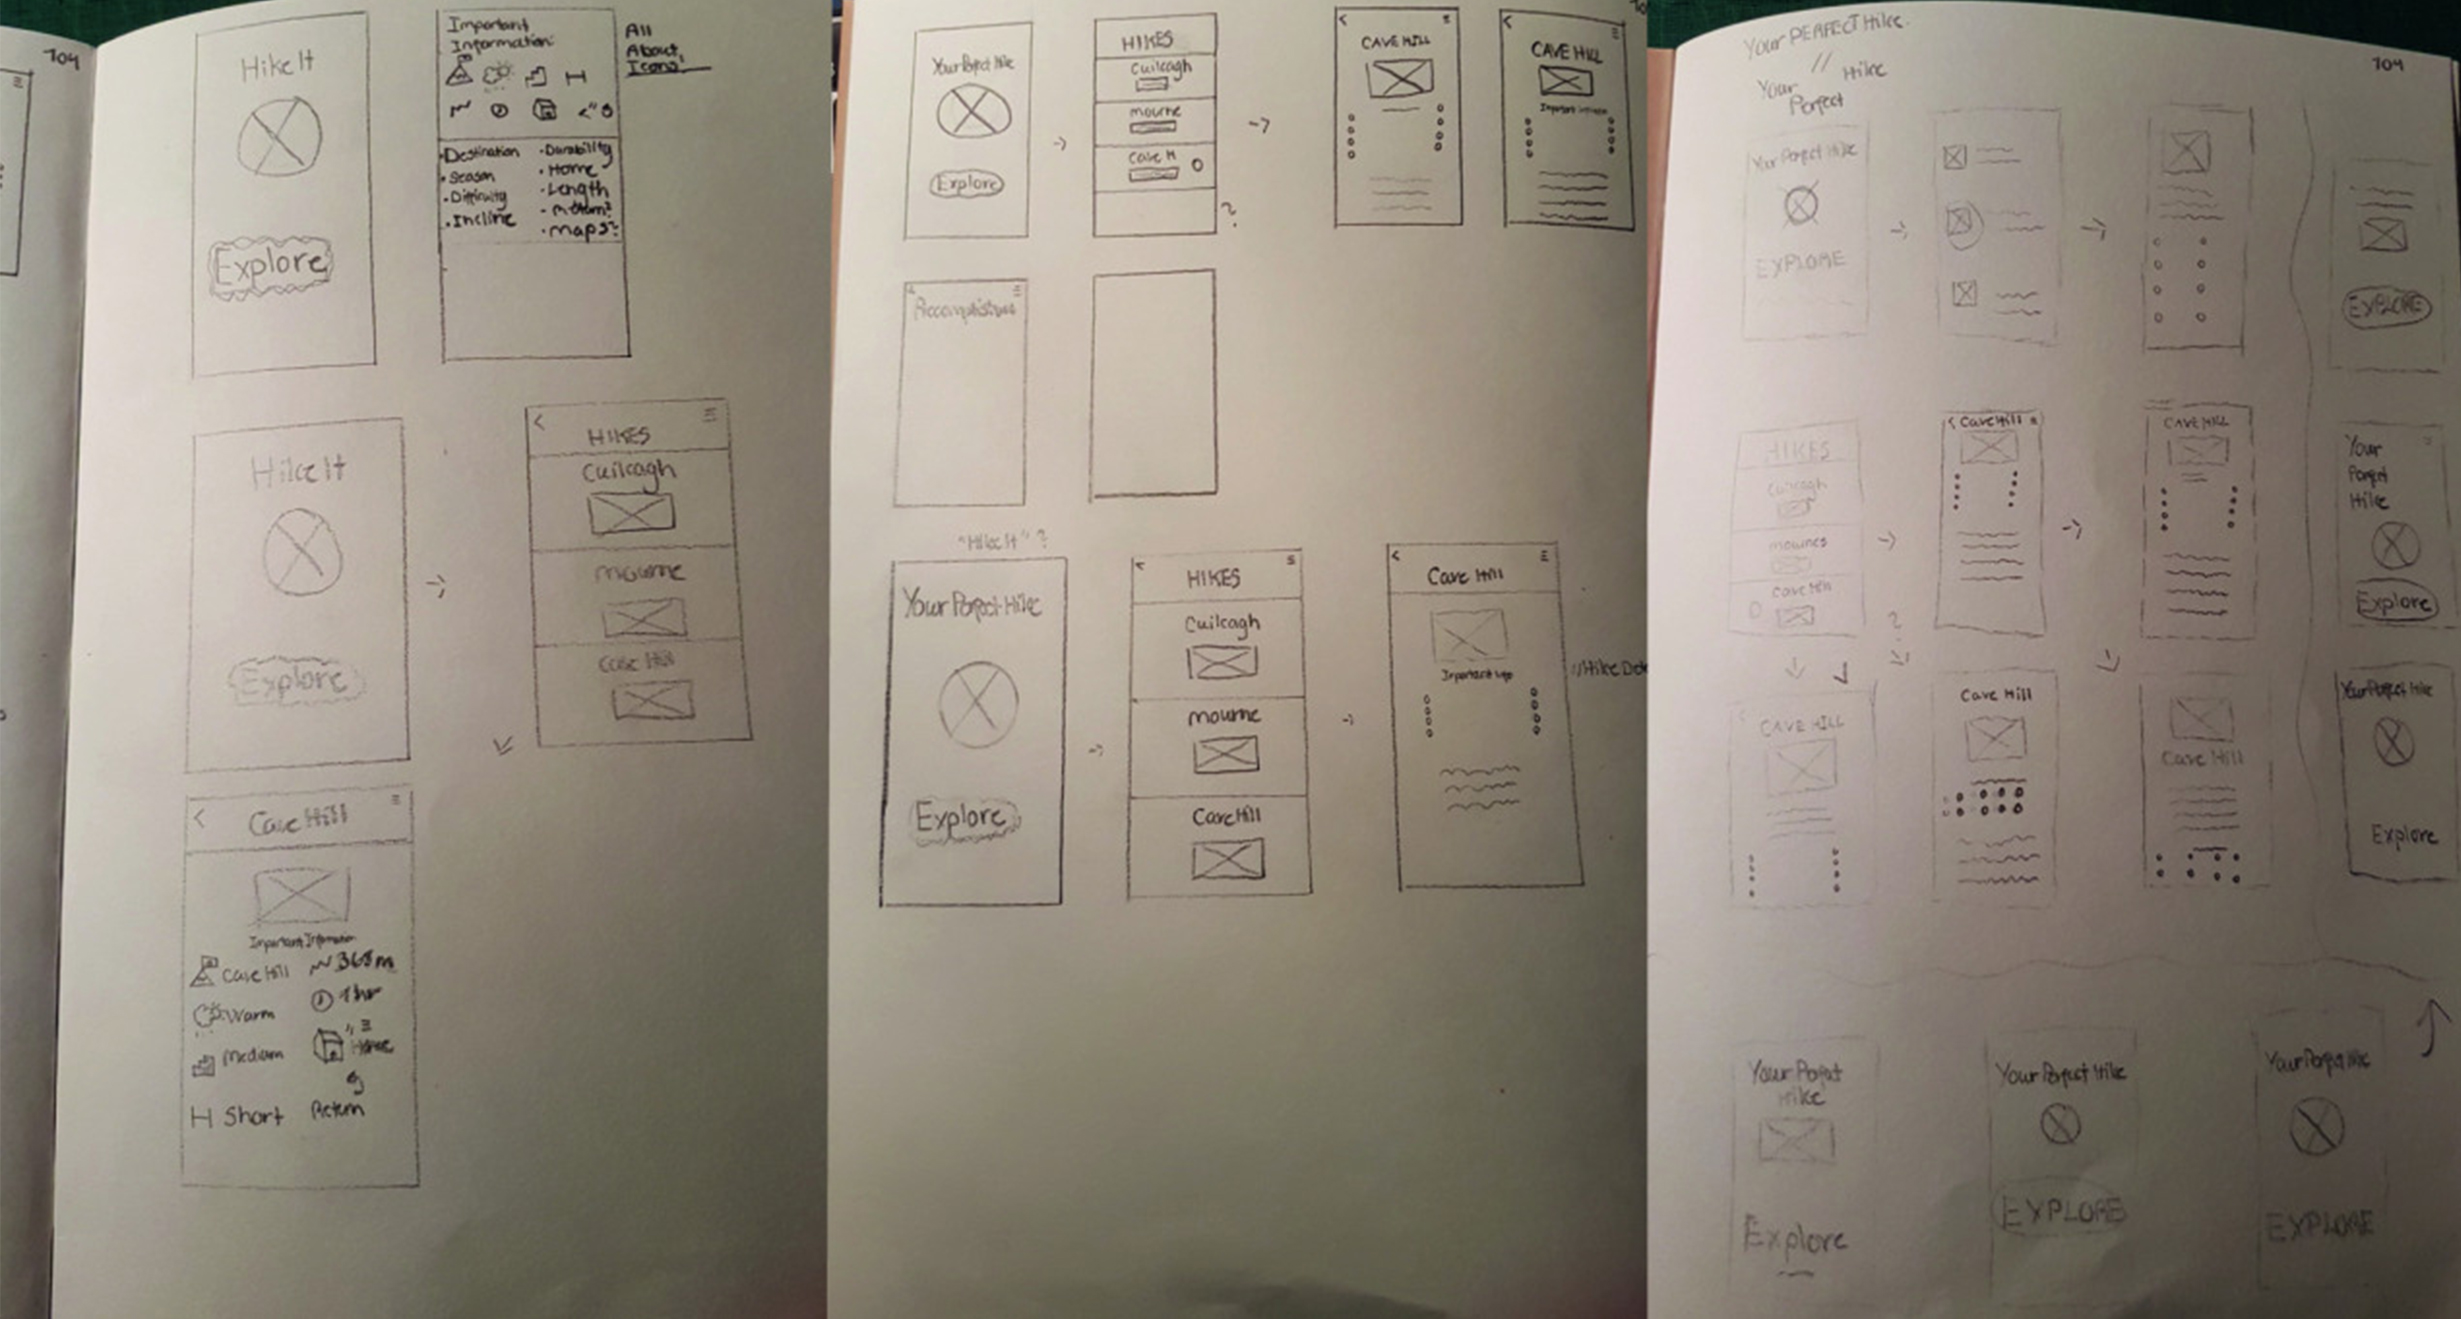 104
Hike It
Explore
Important
Information:
All
About
Icons!
•Destination
•Season
•Difficulty
•Incline
•Durability
•Home
•Length
•Return?
•maps?
Hike It
Explore
HIKES
Cuilcagh
mourne
Cave Hill
Cave Hill
Important Information
Cave Hill
368m
Warm
1 hr
Medium
Home
Short
Return
Your Perfect Hike
Explore
HIKES
Cuilcagh
mourne
Cave H
?
CAVE HILL
CAVE HILL
"Hike It" ?
Your Perfect Hike
Explore
HIKES
Cuilcagh
mourne
Cave Hill
Cave Hill
Important Info
Your PERFECT Hike.
//
Your
Perfect
Hike
104
Your Perfect Hike
EXPLORE
EXPLORE
HIKES
Cuilcagh
mournes
Cave Hill
?
Cave Hill
CAVE HILL
Your
Perfect
Hike
Explore
CAVE HILL
Cave Hill
Cave Hill
Your Perfect Hike
Explore
Your Perfect
Hike
Explore
Your Perfect Hike
EXPLORE
Your Perfect Hike
EXPLORE